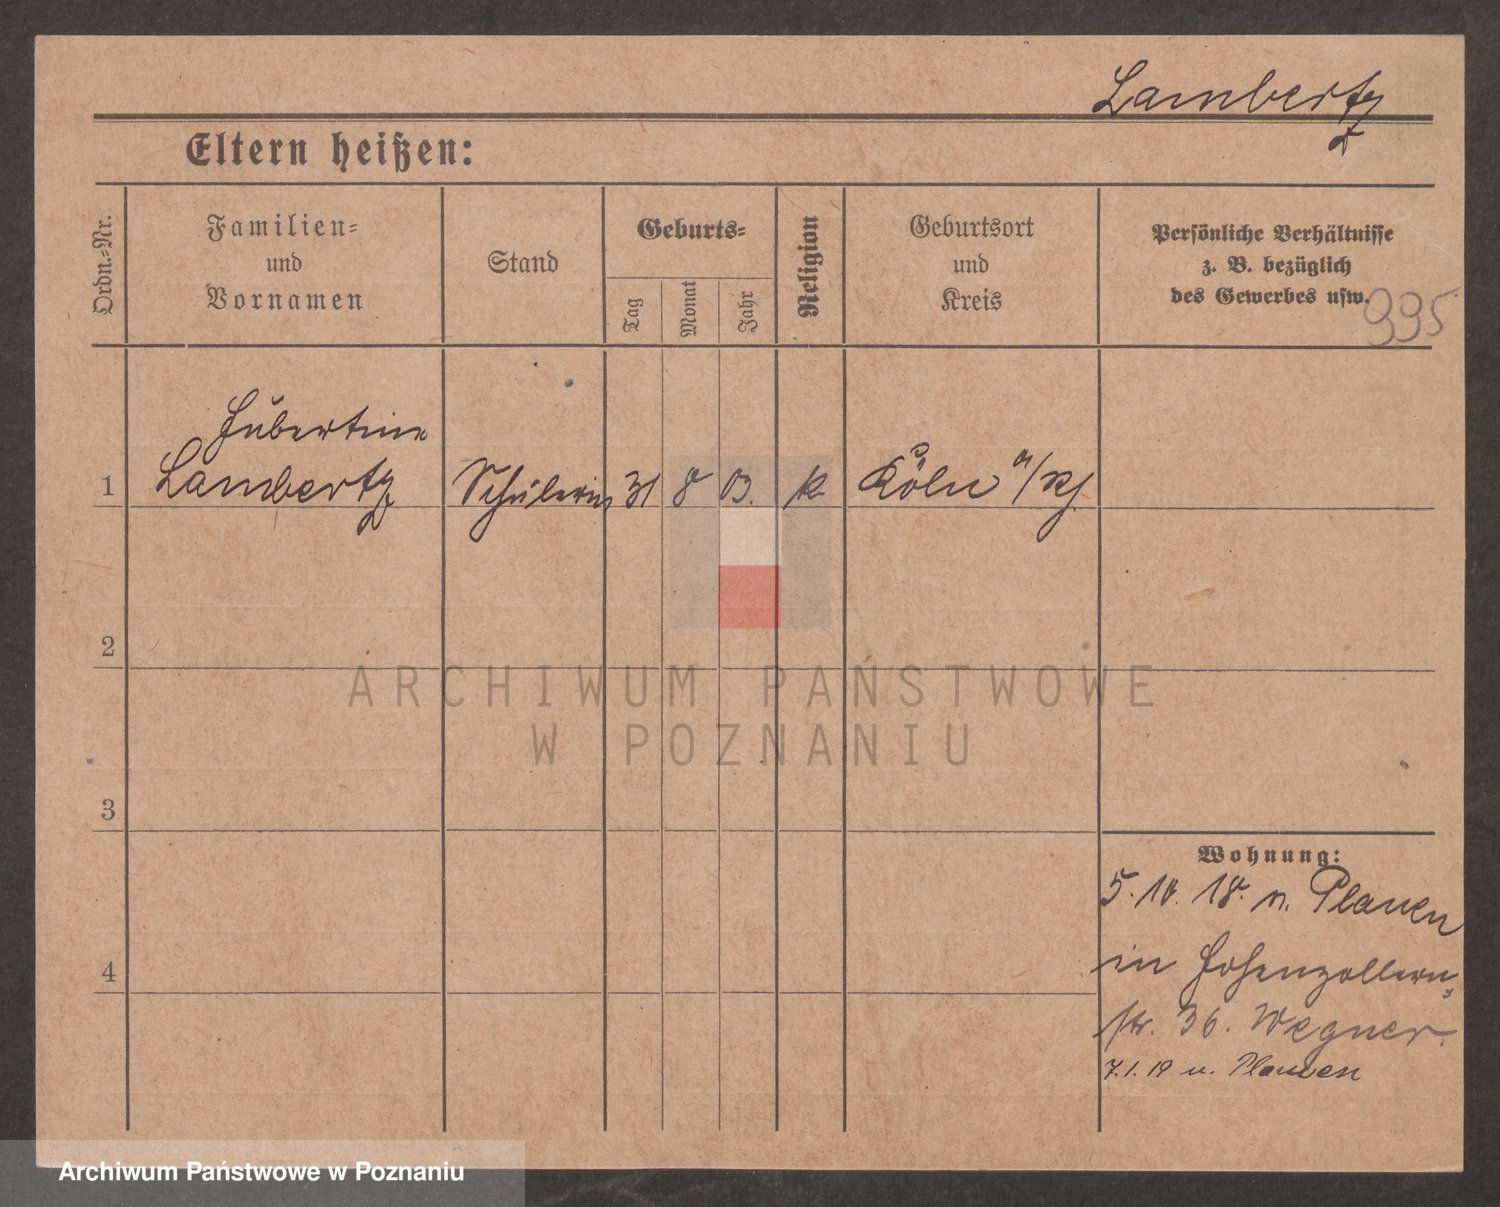 Lambertz
Eltern heißen:
Ordn.-Nr.
Familien-
und
Vornamen
Stand
Geburts-
Tag
Monat
Jahr
Religion
Geburtsort
und
Kreis
Persönliche Verhältnisse
z. B. bezüglich
des Gewerbes usw.
995
Hubertine
1 Lambertz Schülerin 31 8 03. k. Köln a/Rh
2
ARCHIWUM PAŃSTWOWE
W POZNANIU
3
Wohnung:
5. 10. 18. n. Plauen
4
in Hohenzollern-
str. 36. Wegner.
7.1.19 n. Plauen
Archiwum Państwowe w Poznaniu